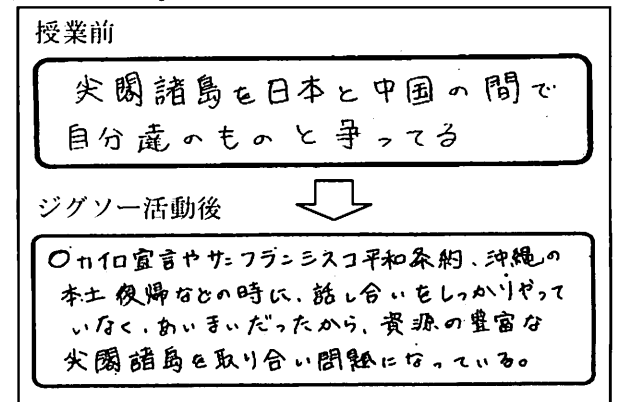 授業前
尖閣諸島を日本と中国の間で
自分達のものと争ってる
ジグソー活動後
○カイロ宣言やサンフランシスコ平和条約、沖縄の
本土復帰などの時に、話し合いをしっかりやって
いなく、あいまいだったから、資源の豊富な
尖閣諸島を取り合い問題になっている。